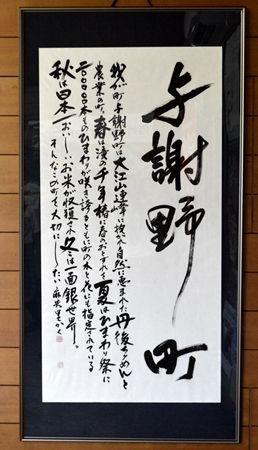 与謝野町
我が町与謝野町は大江山連峰に抱かれ自然に恵まれた丹後ちりめんと
農業の町。春は滝の千年椿に春のおとずれを夏はひまわり祭に
本ものひまわりが咲き誇るともに町の木と花にも指定されている
秋は日本一おいしいお米が収穫され冬は一面銀世界。
そんなこの町を大切にしたい